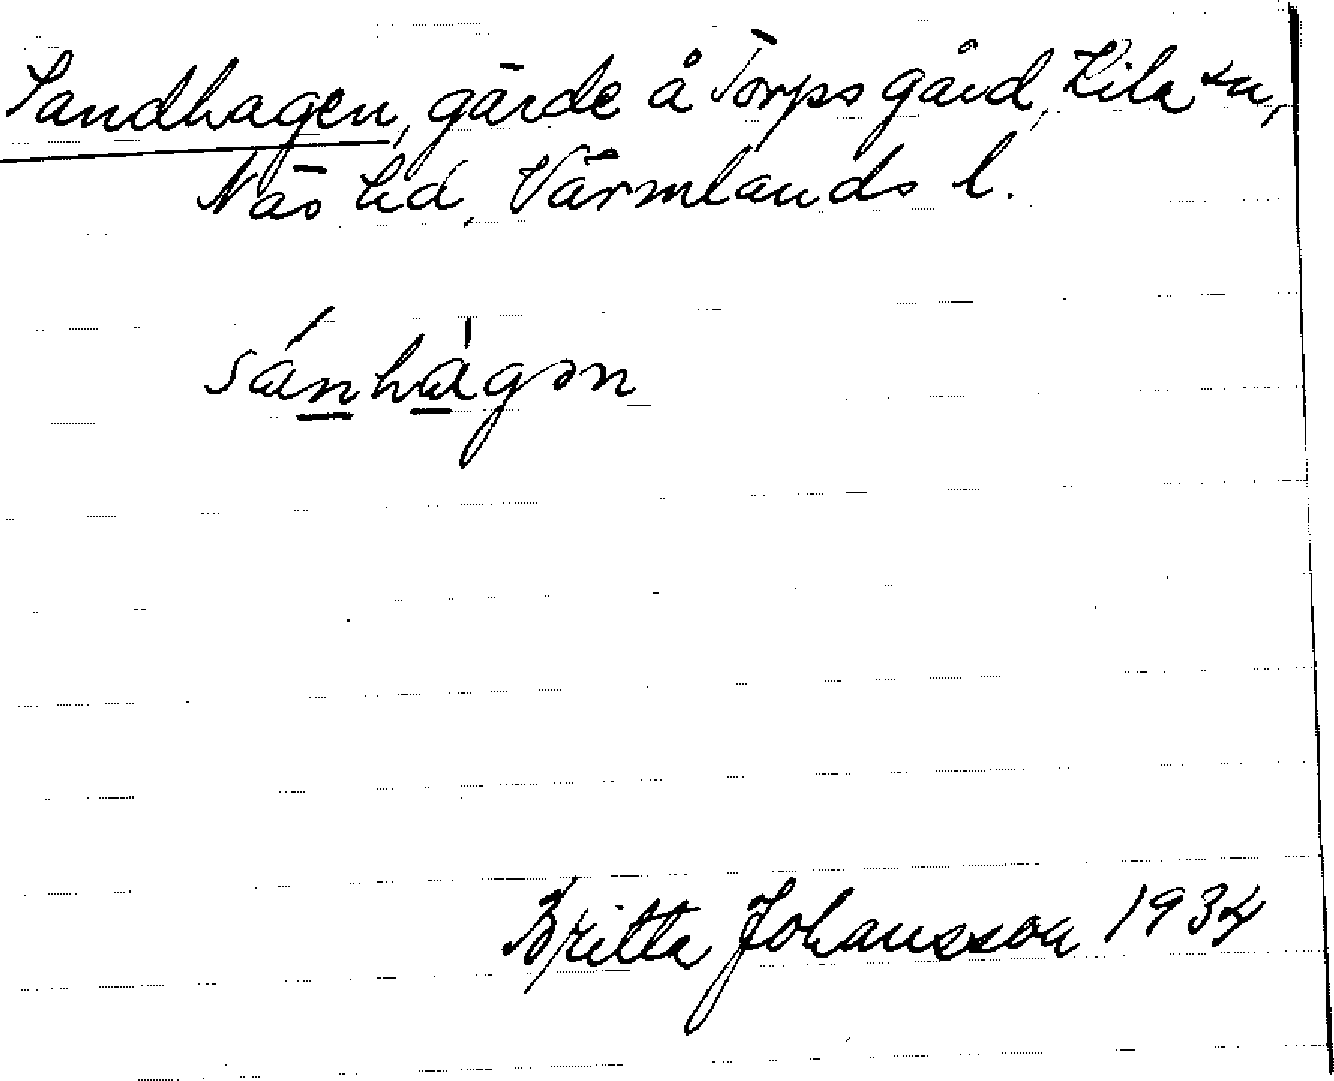 Sandhagen, gärde å Torps gård, Kila sn,
Näs hd, Värmlands l.
sánhàgən
Britta Johansson 1934